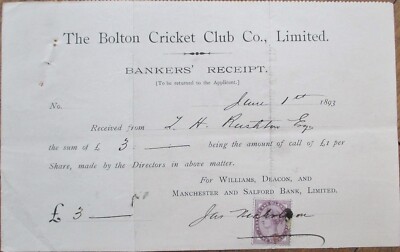 The Bolton Cricket Club Co., Limited.
BANKERS' RECEIPT.
[To be returned to the Applicant.]
No. June 1st 1893
Received from T. H. Rushton Esq
the sum of £ 3 — being the amount of call of £1 per
Share, made by the Directors in above matter.
For WILLIAMS, DEACON, AND
MANCHESTER AND SALFORD BANK, LIMITED.
£ 3 — Jas Nicholson